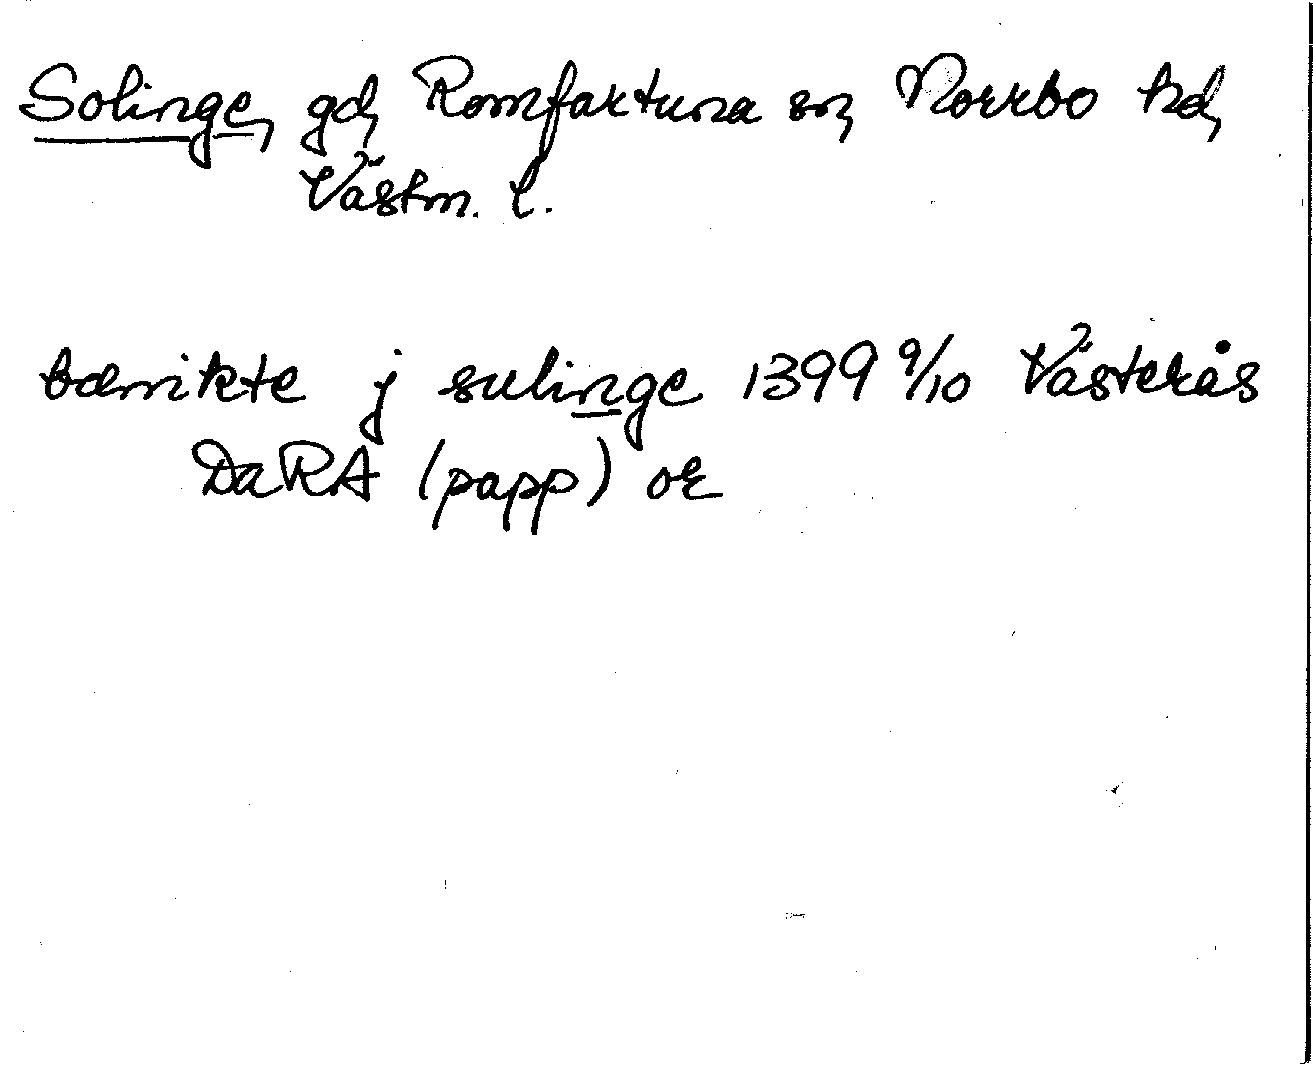 Solinge, gd, Romfartuna sn, Norrbo hd,
Västm. l.
bænikte j sulinge 1399 9/10 Västerås
DaRA (papp) or